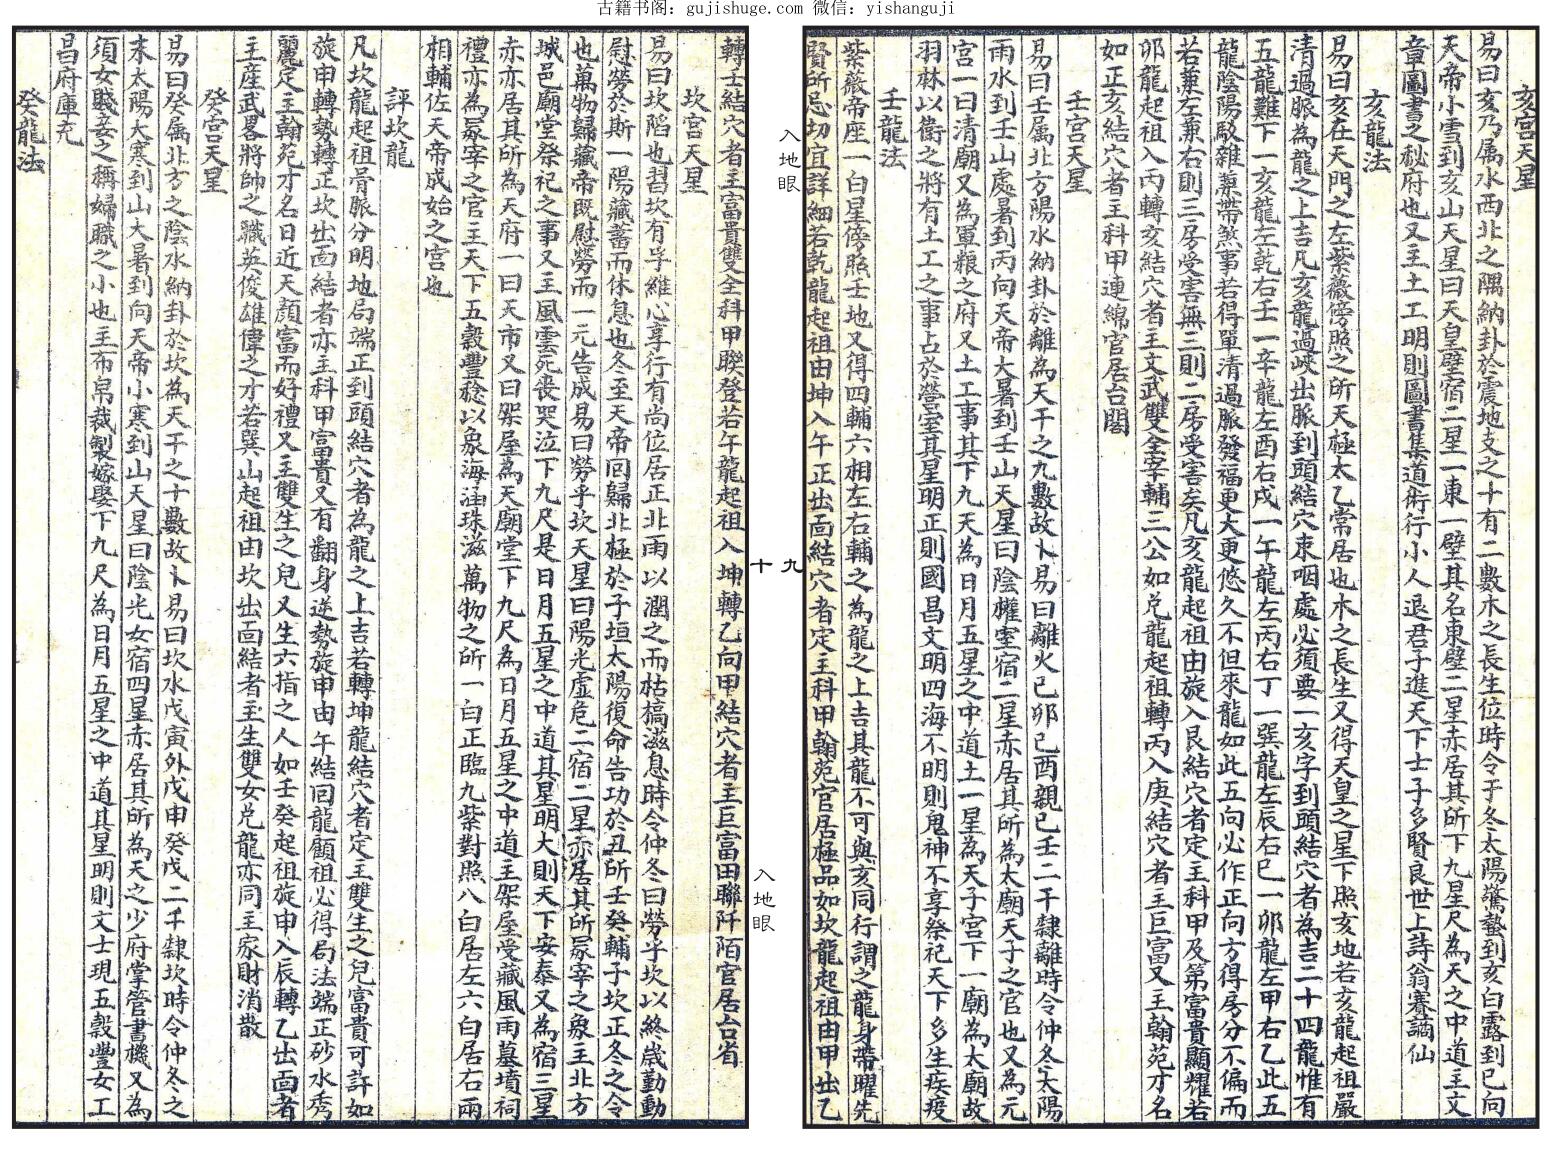 古籍书阁：gujishuge.com 微信：yishanguji
亥宮天星
易曰亥乃属水西北之隅納卦於震地支之十有二數木之長生位時令于冬太陽驚蟄到亥白露到巳向
天帝小雪到亥山天星曰天皇壁宿二星一東一壁其名東壁二星赤居其所下九星尺為天之中道主文
章圖書之秘府也又主土工明則圖書集道術行小人退君子進天下士子多賢良世上詩翁賽謫仙
亥龍法
易曰亥在天門之左紫薇傍照之所天極太乙常居也木之長生又得天皇之星下照亥地若亥龍起祖嚴
清過脈為龍之上吉凡亥龍過峽出脈到頭結穴束咽處必須要一亥字到頭結穴者為吉二十四龍惟有
五龍難下一亥龍左乾右壬一辛龍左酉右戌一午龍左丙右丁一巽龍左辰右巳一卯龍左甲右乙此五
龍陰陽駁雜蒂帶煞事若得單清過脈發福更大更悠久不但來龍如此五向必作正向方得房分不偏而
若兼左兼右則三房受害無二則二房受害矣凡亥龍起祖由旋入艮結穴者定主科甲及第富貴顯耀若
卯龍起祖入丙轉亥結穴者主文武雙全宰輔三公如兌龍起祖轉丙入庚結穴者主巨富又主翰苑才名
如正亥結穴者主科甲連綿官居台閣
壬宮天星
易曰壬属北方陽水納卦於離為天干之九數故卜易曰離火己卯己酉親己壬二干隸離時令仲冬太陽
雨水到壬山處暑到丙向天帝大暑到壬山天星曰陰權室宿二星赤居其所為太廟天子之官也又為元
宮一曰清廟又為軍粮之府又土工事其下九天為日月五星之中道土一星為天子宮下一廟為太廟故
羽林以衛之將有土工之事占於營室其星明正則國昌文明四海不明則鬼神不享祭祀天下多生疾疫
壬龍法
紫薇帝座一白星傍照壬地又得四輔六相左右輔之為龍之上吉其龍不可與亥同行謂之龍身帶曜先
賢所忌切宜詳細若乾龍起祖由坤入午正出面結穴者定主科甲翰苑官居極品如坎龍起祖由甲出乙
入地眼
十九
入地眼
轉壬結穴者主富貴雙全科甲聯登若午龍起祖入坤轉乙向甲結穴者主巨富田聯阡陌官居台省
坎宮天星
易曰坎陷也習坎有孚維心享行有尚位居正北雨以潤之而枯槁滋息時令仲冬曰勞乎坎以終歲勤動
慰勞於斯一陽藏蓄而休息也冬至天帝回歸北極於子垣太陽復命告功於丑所壬癸輔子坎正冬之令
也萬物歸藏帝既慰勞而一元告成易曰勞乎坎天星曰陽光虛危二宿二星亦居其所冡宰之象主北方
城邑廟堂祭祀之事又主風雲死喪哭泣下九尺是日月五星之中道其星明大則天下安泰又為宿三星
赤亦居其所為天府一曰天市又曰架屋為天廟堂下九尺為日月五星之中道主架屋受藏風雨墓墳祠
禮亦為冢宰之官主天下五穀豐稔以象海涯珠滋萬物之所一白正臨九紫對照八白居左六白居右兩
相輔佐天帝成始之宮也
評坎龍
凡坎龍起祖骨脈分明地局端正到頭結穴者為龍之上吉若轉坤龍結穴者定主雙生之兒富貴可許如
旋申轉勢轉正坎出面結者亦主科甲富貴又有翻身逆勢旋申由午結回龍顧祖必得局法端正砂水秀
麗定主翰苑才名日近天顏富而好禮又主雙生之兒又生六指之人如壬癸起祖旋申入辰轉乙出面者
主座武畧將帥之職英俊雄偉之才若巽山起祖由坎出面結者主生雙女兌龍亦同主家財消散
癸宮天星
易曰癸属北方之陰水納卦於坎為天干之十數故卜易曰坎水戊寅外戊申癸戊二千隸坎時令仲冬之
末太陽大寒到山大暑到向天帝小寒到山天星曰陰光女宿四星赤居其所為天之少府掌管書機又為
須女賤妾之稱婦職之小也主布帛裁製嫁娶下九尺為日月五星之中道其星明則文士現五穀豐女工
昌府庫充
癸龍法